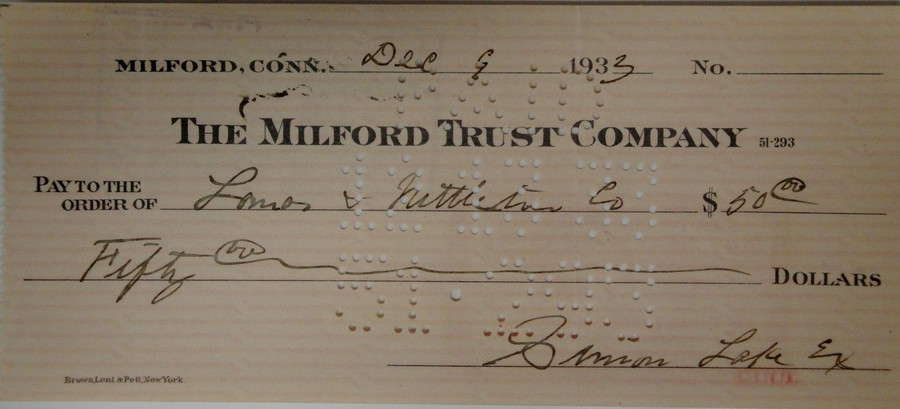 MILFORD, CONN. Dec 9 1933 No.
THE MILFORD TRUST COMPANY 51-293
PAY TO THE ORDER OF Lomas & Nettleton Co $ 50 00
Fifty 00 DOLLARS
Simon Lake Ex
Brown, Lent & Pett, New York